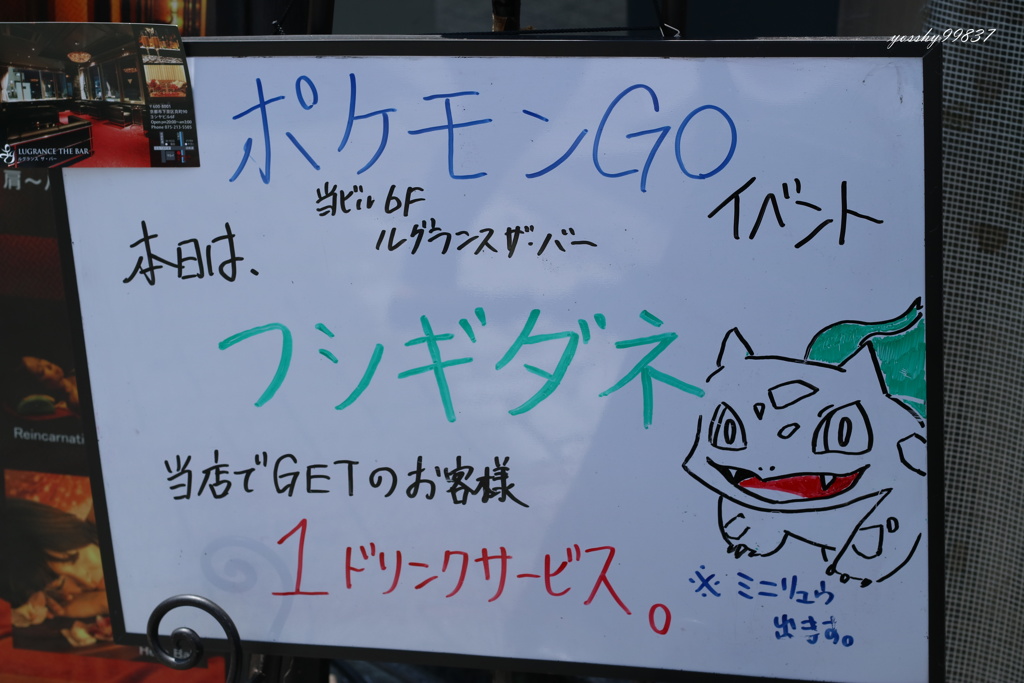 yosshy99837
LUGRANCE THE BAR
ルグランス ザ・バー
ポケモンGO
当ビル6F
ルグランスザ・バー
イベント
本日は、
フシギダネ
当店でGETのお客様
1ドリンクサービス。
※ミニリュウ
出ます。
Reincarnati